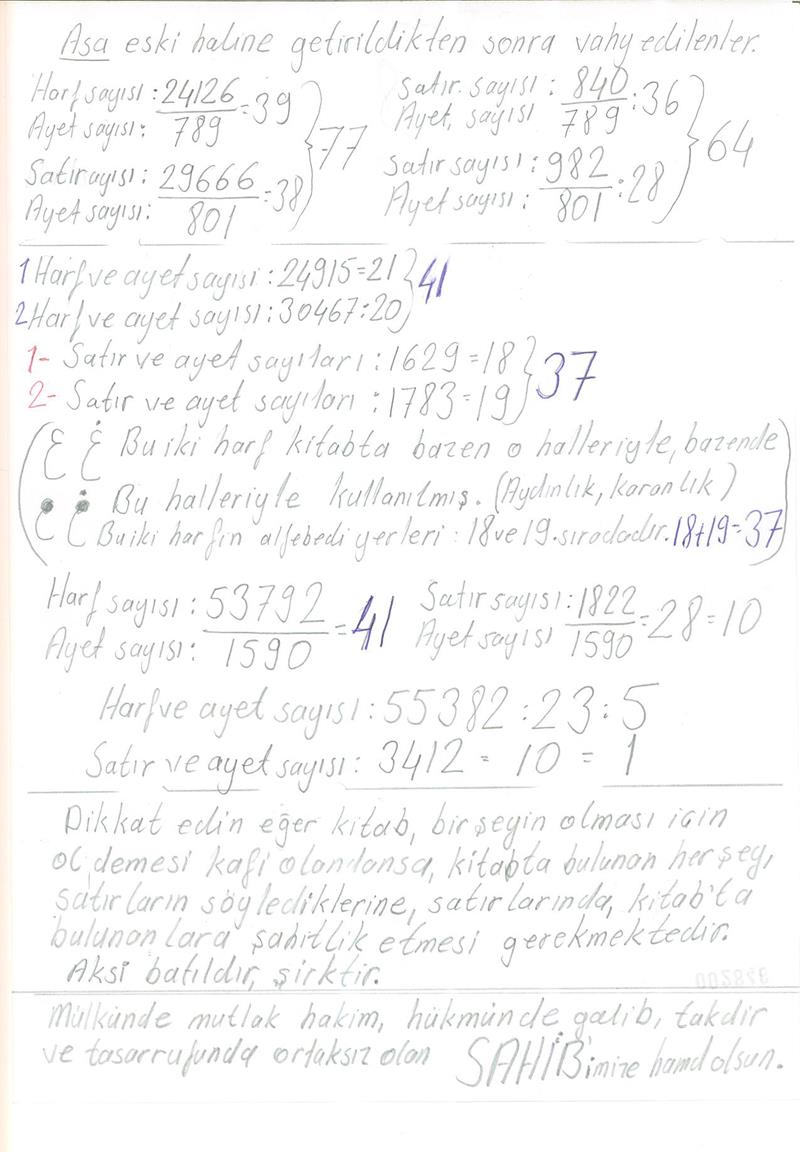 Asa eski haline getirildikten sonra vahyedilenler.
Harf sayısı : 24126 = 39
Ayet sayısı : 789
77
Satırayısı : 29666 = 38
Ayet sayısı : 801
Satır. sayısı : 840 : 36
Ayet, sayısı 789
64
Satır sayısı : 982 : 28
Ayet sayısı : 801
1 Harf ve ayet sayısı : 24915 = 21
41
2 Harf ve ayet sayısı : 30467 : 20
1- Satır ve ayet sayıları : 1629 = 18
37
2- Satır ve ayet sayıları : 1783 = 19
(ع غ Bu iki harf kitabta bazen o halleriyle, bazende
Bu halleriyle kullanılmış. (Aydınlık, karanlık)
Bu iki harfin alfebedi yerleri : 18 ve 19. sıradadır. 18+19=37)
Harf sayısı : 53792 = 41
Ayet sayısı : 1590
Satır sayısı : 1822 = 28 = 10
Ayet sayısı 1590
Harf ve ayet sayısı : 55382 : 23 : 5
Satır ve ayet sayısı : 3412 = 10 = 1
Dikkat edin eğer kitab, bir şeyin olması için
ol demesi kafi olandansa, kitabta bulunan her şey,
satırların söylediklerine, satırlarında, kitab'ta
bulunanlara şahitlik etmesi gerekmektedir.
Aksi batıldır, şirktir.
Mülkünde mutlak hakim, hükmünde galib, takdir
ve tasarrufunda ortaksız olan SAHİB'imize hamd olsun.